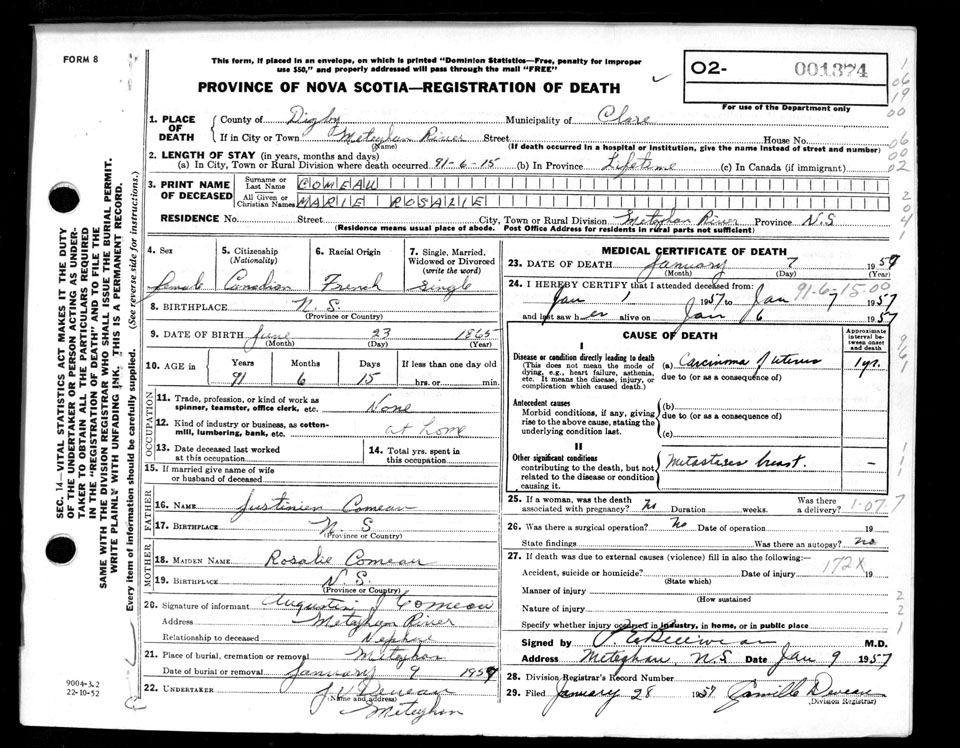 FORM 8
This form, if placed in an envelope, on which is printed "Dominion Statistics—Free, penalty for improper
use $50," and properly addressed will pass through the mail "FREE"
PROVINCE OF NOVA SCOTIA—REGISTRATION OF DEATH
O2- 001374
For use of the Department only
1. PLACE OF DEATH
County of Digby Municipality of Clare
If in City or Town Meteghan River Street House No.
(Name) (If death occurred in a hospital or institution, give the name instead of street and number)
2. LENGTH OF STAY (in years, months and days)
(a) In City, Town or Rural Division where death occurred 91-6-15 (b) In Province Lifetime (c) In Canada (if immigrant)
3. PRINT NAME OF DECEASED
Surname or Last Name COMEAU
All Given or Christian Names MARIE ROSALIE
RESIDENCE No. Street City, Town or Rural Division Meteghan River Province N.S
(Residence means usual place of abode. Post Office Address for residents in rural parts not sufficient)
4. Sex female
5. Citizenship (Nationality) Canadian
6. Racial Origin French
7. Single, Married, Widowed or Divorced (write the word) Single
8. BIRTHPLACE N.S.
(Province or Country)
9. DATE OF BIRTH June 23 1865
(Month) (Day) (Year)
10. AGE in Years Months Days If less than one day old
91 6 15 hrs. or min.
OCCUPATION
11. Trade, profession, or kind of work as spinner, teamster, office clerk, etc. None
12. Kind of industry or business, as cotton-mill, lumbering, bank, etc. at home
13. Date deceased last worked at this occupation
14. Total yrs. spent in this occupation
15. If married give name of wife or husband of deceased
FATHER
16. NAME Justinien Comeau
17. BIRTHPLACE N. S
(Province or Country)
MOTHER
18. MAIDEN NAME Rosalie Comeau
19. BIRTHPLACE N.S
(Province or Country)
20. Signature of informant Augustin J Comeau
Address Meteghan River
Relationship to deceased Nephew
21. Place of burial, cremation or removal Meteghan
Date of burial or removal January 9 1957
22. UNDERTAKER
(Name and address)
Meteghan
9004-3.2
22-10-52
SEC. 14—VITAL STATISTICS ACT MAKES IT THE DUTY
OF THE UNDERTAKER OR PERSON ACTING AS UNDER-
TAKER TO OBTAIN ALL THE PARTICULARS REQUIRED
IN THE "REGISTRATION OF DEATH" AND TO FILE THE
SAME WITH THE DIVISION REGISTRAR WHO SHALL ISSUE THE BURIAL PERMIT.
WRITE PLAINLY WITH UNFADING INK, THIS IS A PERMANENT RECORD.
Every item of information should be carefully supplied. (See reverse side for instructions.)
MEDICAL CERTIFICATE OF DEATH
23. DATE OF DEATH January 7 1957
(Month) (Day)
24. I HEREBY CERTIFY that I attended deceased from: 91-6-15-00
Jan 1 1957 to Jan 7 1957
and last saw her alive on Jan 6 1957
CAUSE OF DEATH
Approximate interval between onset and death
I
Disease or condition directly leading to death
(This does not mean the mode of dying, e.g., heart failure, asthenia, etc. It means the disease, injury, or complication which caused death.)
(a) Carcinoma of uterus 1 yr.
due to (or as a consequence of)
Antecedent causes
Morbid conditions, if any, giving rise to the above cause, stating the underlying condition last.
(b)
due to (or as a consequence of)
(c)
II
Other significant conditions
contributing to the death, but not related to the disease or condition causing it.
Metastises breast. —
25. If a woman, was the death associated with pregnancy? No Duration weeks. Was there a delivery? 1-07 7
26. Was there a surgical operation? No Date of operation 19
State findings Was there an autopsy? no
27. If death was due to external causes (violence) fill in also the following:—
172X
Accident, suicide or homicide? Date of injury 19
(State which)
Manner of injury
(How sustained
Nature of injury
Specify whether injury occurred in industry, in home, or in public place
Signed by M.D.
Address Meteghan, N.S Date Jan 9 1957
28. Division Registrar's Record Number
29. Filed January 28 1957 Camille Deveau
(Division Registrar)